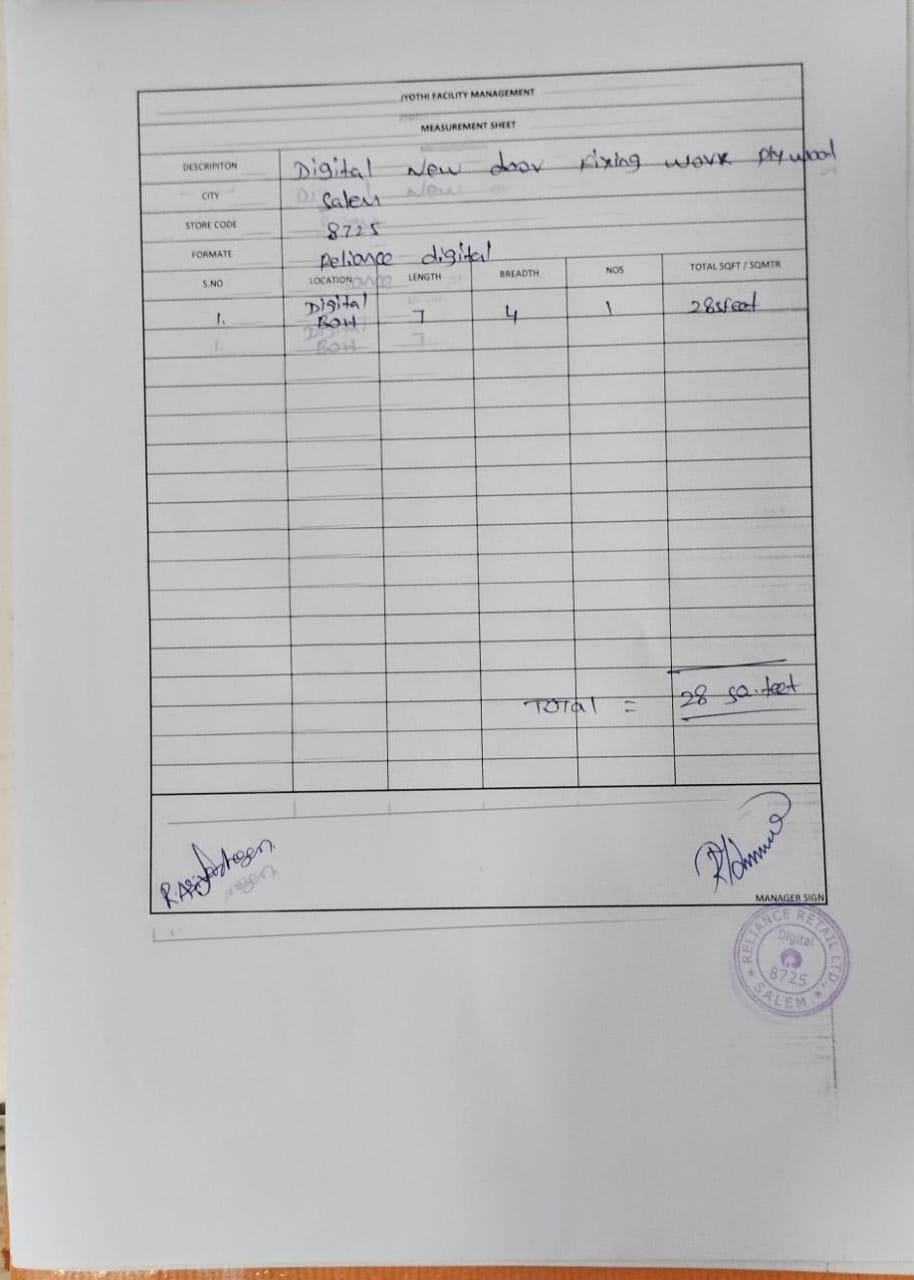 JYOTHI FACILITY MANAGEMENT
MEASUREMENT SHEET
DESCRIPITON Digital New door Fixing work plywood
CITY Salem
STORE CODE 8725
FORMATE Reliance digital
S.NO LOCATION LENGTH BREADTH NOS TOTAL SQFT / SQMTR
1. Digital BOH 7 4 1 28sfeet
TOTAL = 28 SQ.feet
MANAGER SIGN
RELIANCE RETAIL LTD.,
Digital
8725
SALEM